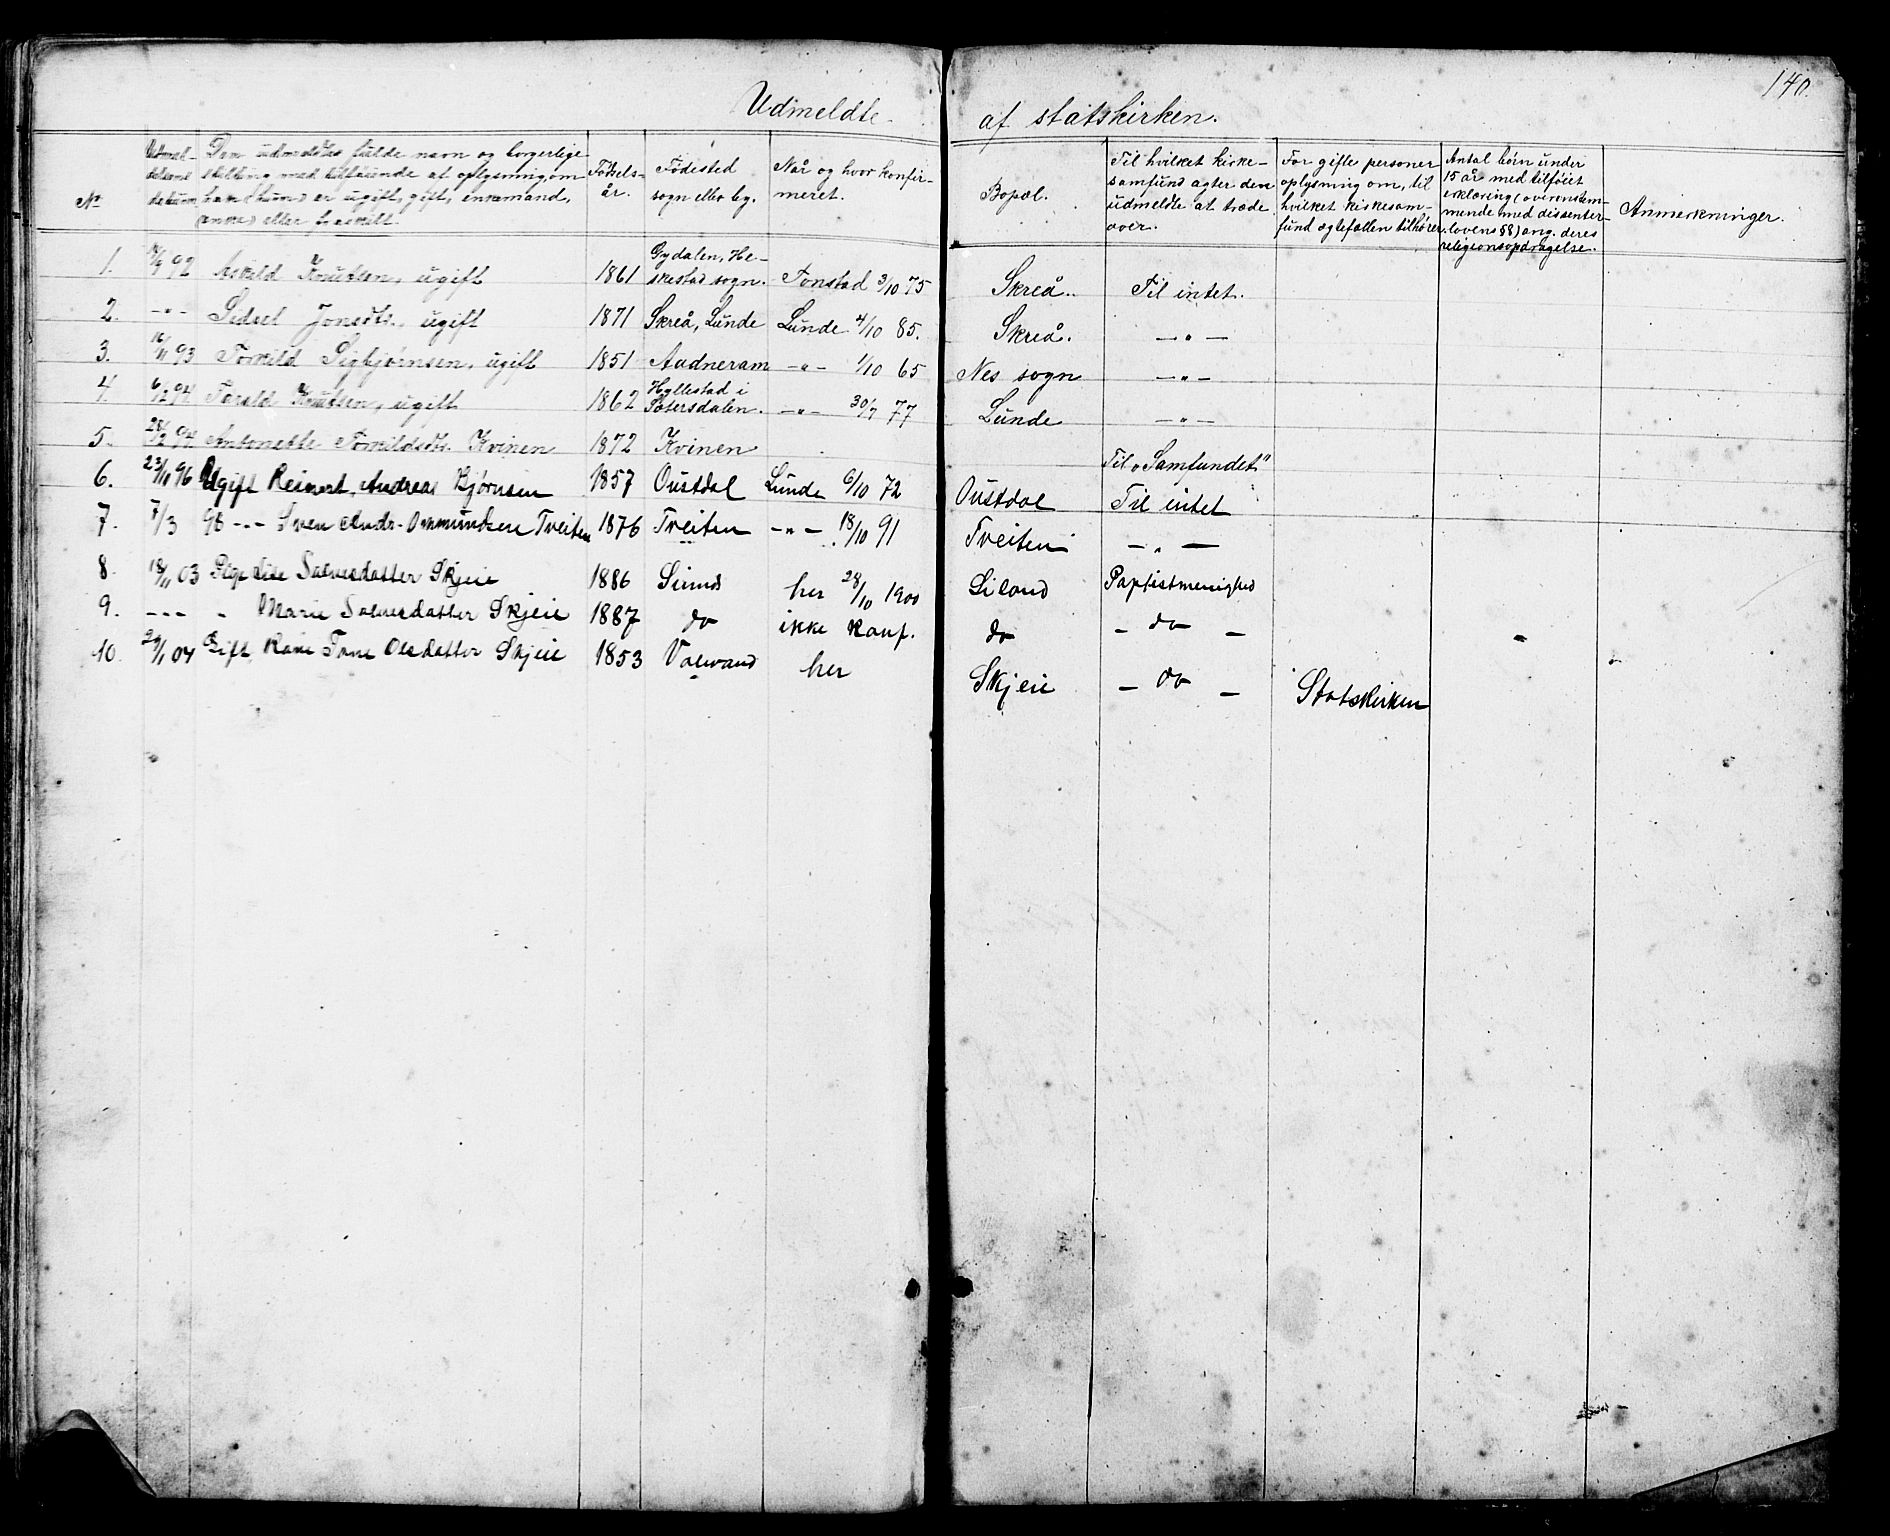 140.
Udmeldte af statskirken.
No
Udmel-
delsens
datum.
Den udmeldtes fulde navn og borgerlige
stilling med tilføiende af oplysning, om
han (hun) er ugift, gift, enkemand,
(enke) eller fraskilt.
Fødsels-
år.
Fødested
sogn eller by.
Når og hvor konfir-
meret.
Bopæl.
Til hvilket kirke-
samfund agter den
udmeldte at træde
over.
For gifte personer
oplysning om, til
hvilket kirkesam-
fund ægtefællen tilhører.
Antal børn under
15 år med tilføiet
erklæring (overenstem-
mende med dissenter-
lovens §8) ang. deres
religionsopdragelse.
Anmerkninger.
1. 92 Askild Knudsen, ugift 1861 Gydalen, He-
skestad sogn. Tonstad 3/10 75 Skreå. Til intet.
2. -"- Sidsel Jonsdtr., ugift 1871 Skreå, Lunde Lunde 4/10 85. Skreå. -"-
3. 16/11 93 Torkild Sigbjørnsen, ugift 1851 Aadneram -"- 1/10 65 Nes sogn -"-
4. 6/12 94 Tarald Knudsen, ugift 1862 Hyllestad i
Sætersdalen. -"- 30/7 77 Lunde -"-
5. 28/12 94 Antonette Torkildsdtr. Kvinen 1872 Kvinen Til "Samfundet"
6. 23/11 96 Ugift Reinert Andreas Bjørnsen 1857 Oustdal Lunde 6/10 72 Oustdal Til intet
7. 7/3 98 -"- Sven Andr. Ommundsen Treiten 1876 Treiten -"- 18/10 91 Treiten -"-
8. 18/11 03 Pige Lise Salvesdatter Skjeie 1886 Siruds her 28/10 1900 Liland Baptistmenighed
9. --- " Marie Salvesdatter Skjeie 1887 do ikke konf. do - do -
10. 29/1 04 Gift Tone Olsdatter Skjeie 1853 Valevand her Skjeie - do - Statskirken